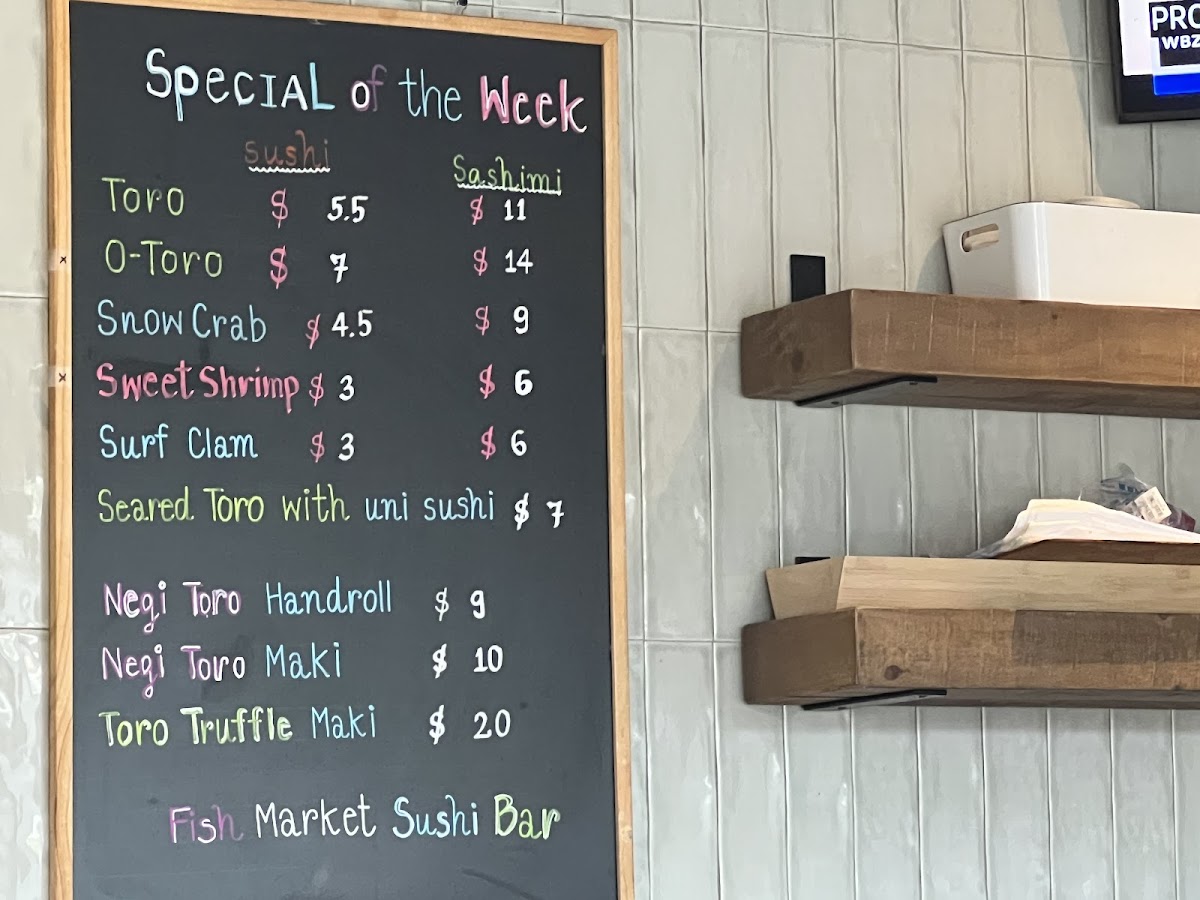 Special of the Week
sushi Sashimi
Toro $ 5.5 $ 11
O-Toro $ 7 $ 14
Snow Crab $ 4.5 $ 9
Sweet Shrimp $ 3 $ 6
Surf Clam $ 3 $ 6
Seared Toro with uni sushi $ 7
Negi Toro Handroll $ 9
Negi Toro Maki $ 10
Toro Truffle Maki $ 20
Fish Market Sushi Bar
WBZ